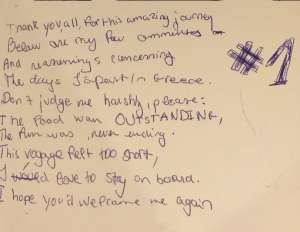 Thank you, all, for this amazing journey
Below are my few comments
And reasonings concerning
The days I spent in Greece.
Don't judge me harshly, please:
The food was OUTSTANDING,
The fun was never ending.
This voyage felt too short,
I would love to stay on board.
I hope you'd welcome me again
#1